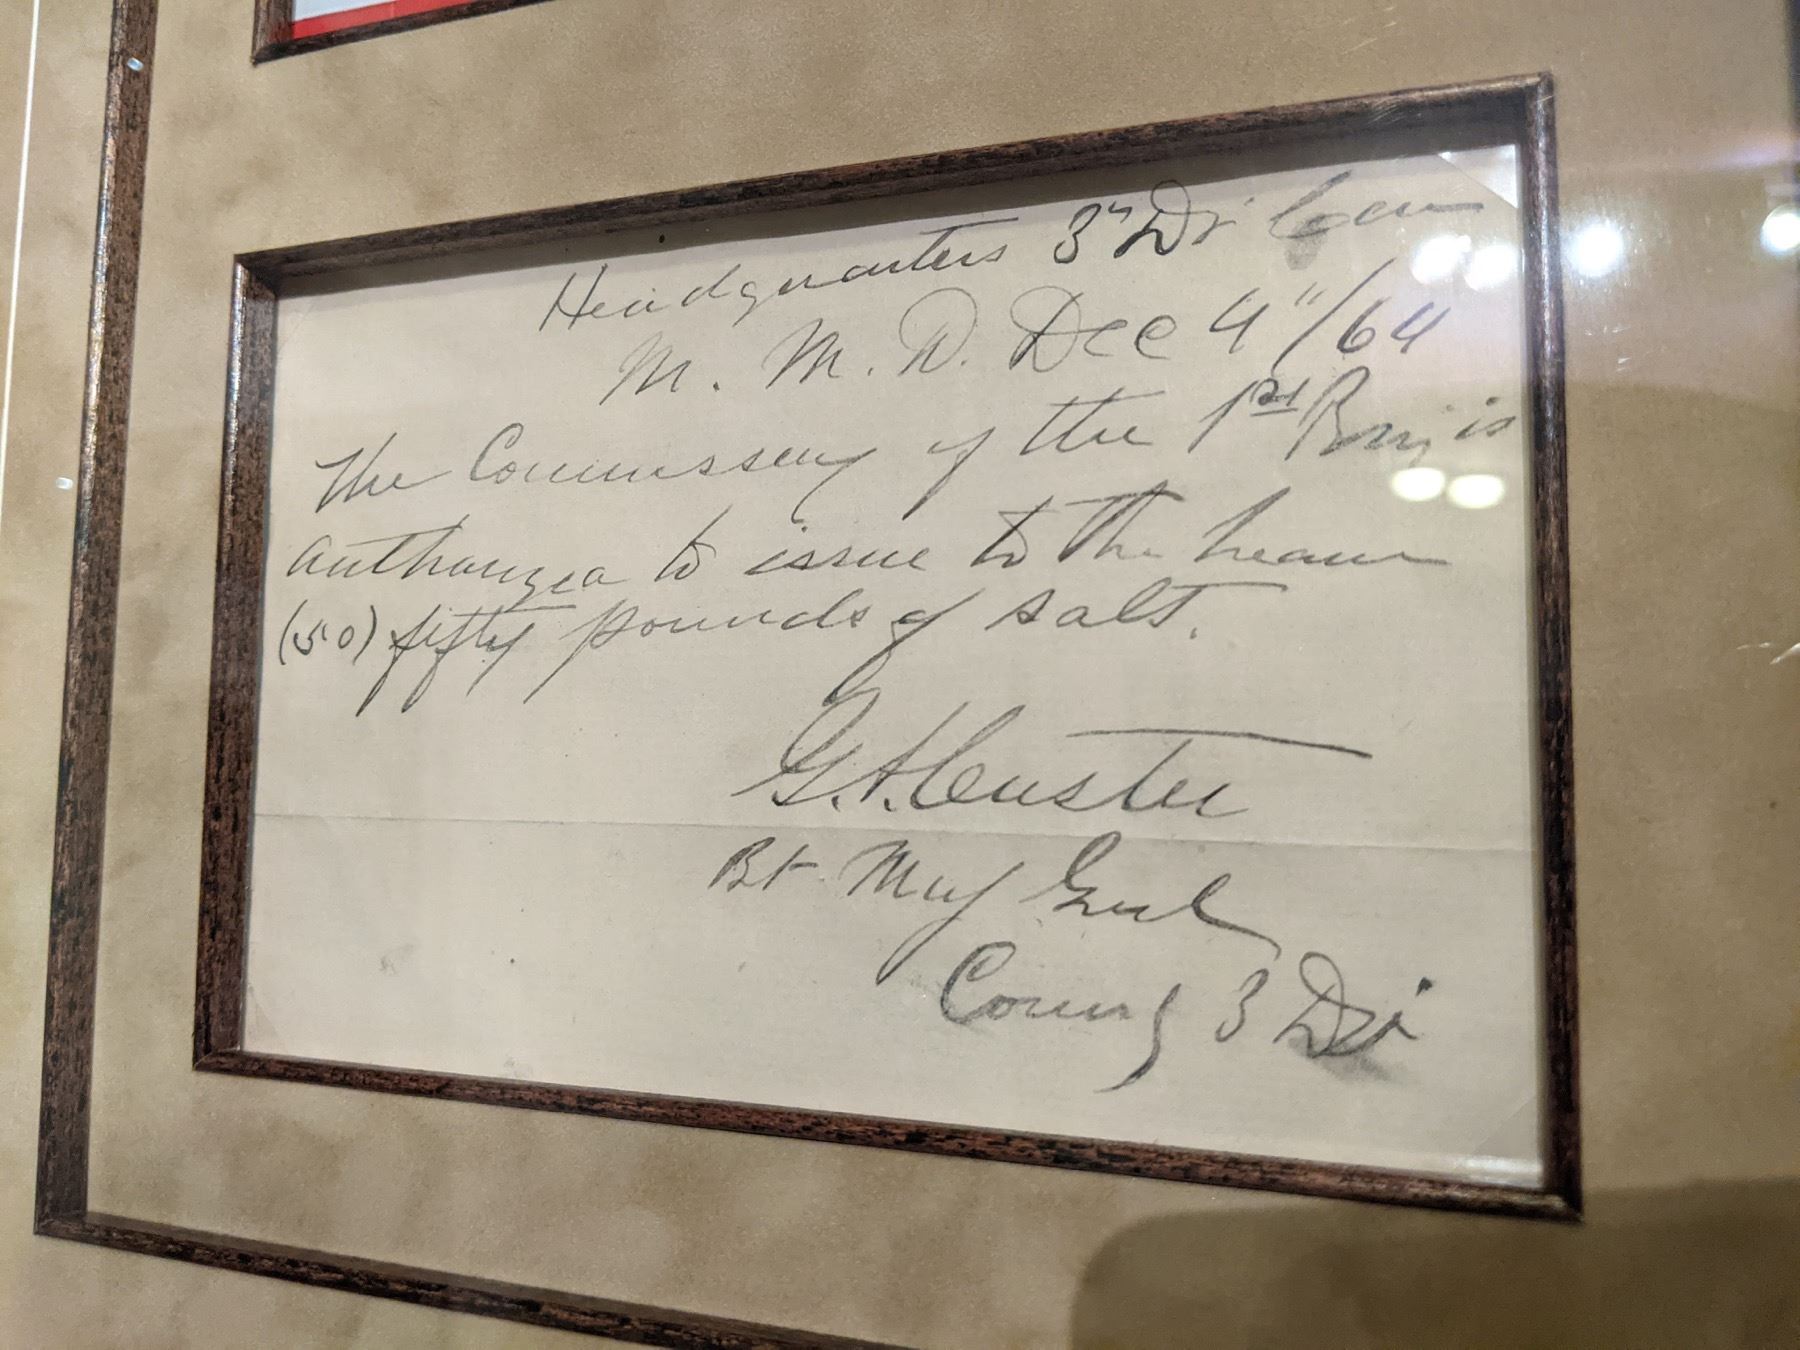 Headquarters 3" Di' Cav
M. M. D. Dec 4"/64
The Commissary of the 1st Brig is
authorized to issue to the bearer
(50) fifty pounds of salt.
G. A. Custer
Bt Maj Genl
Comg 3 Di